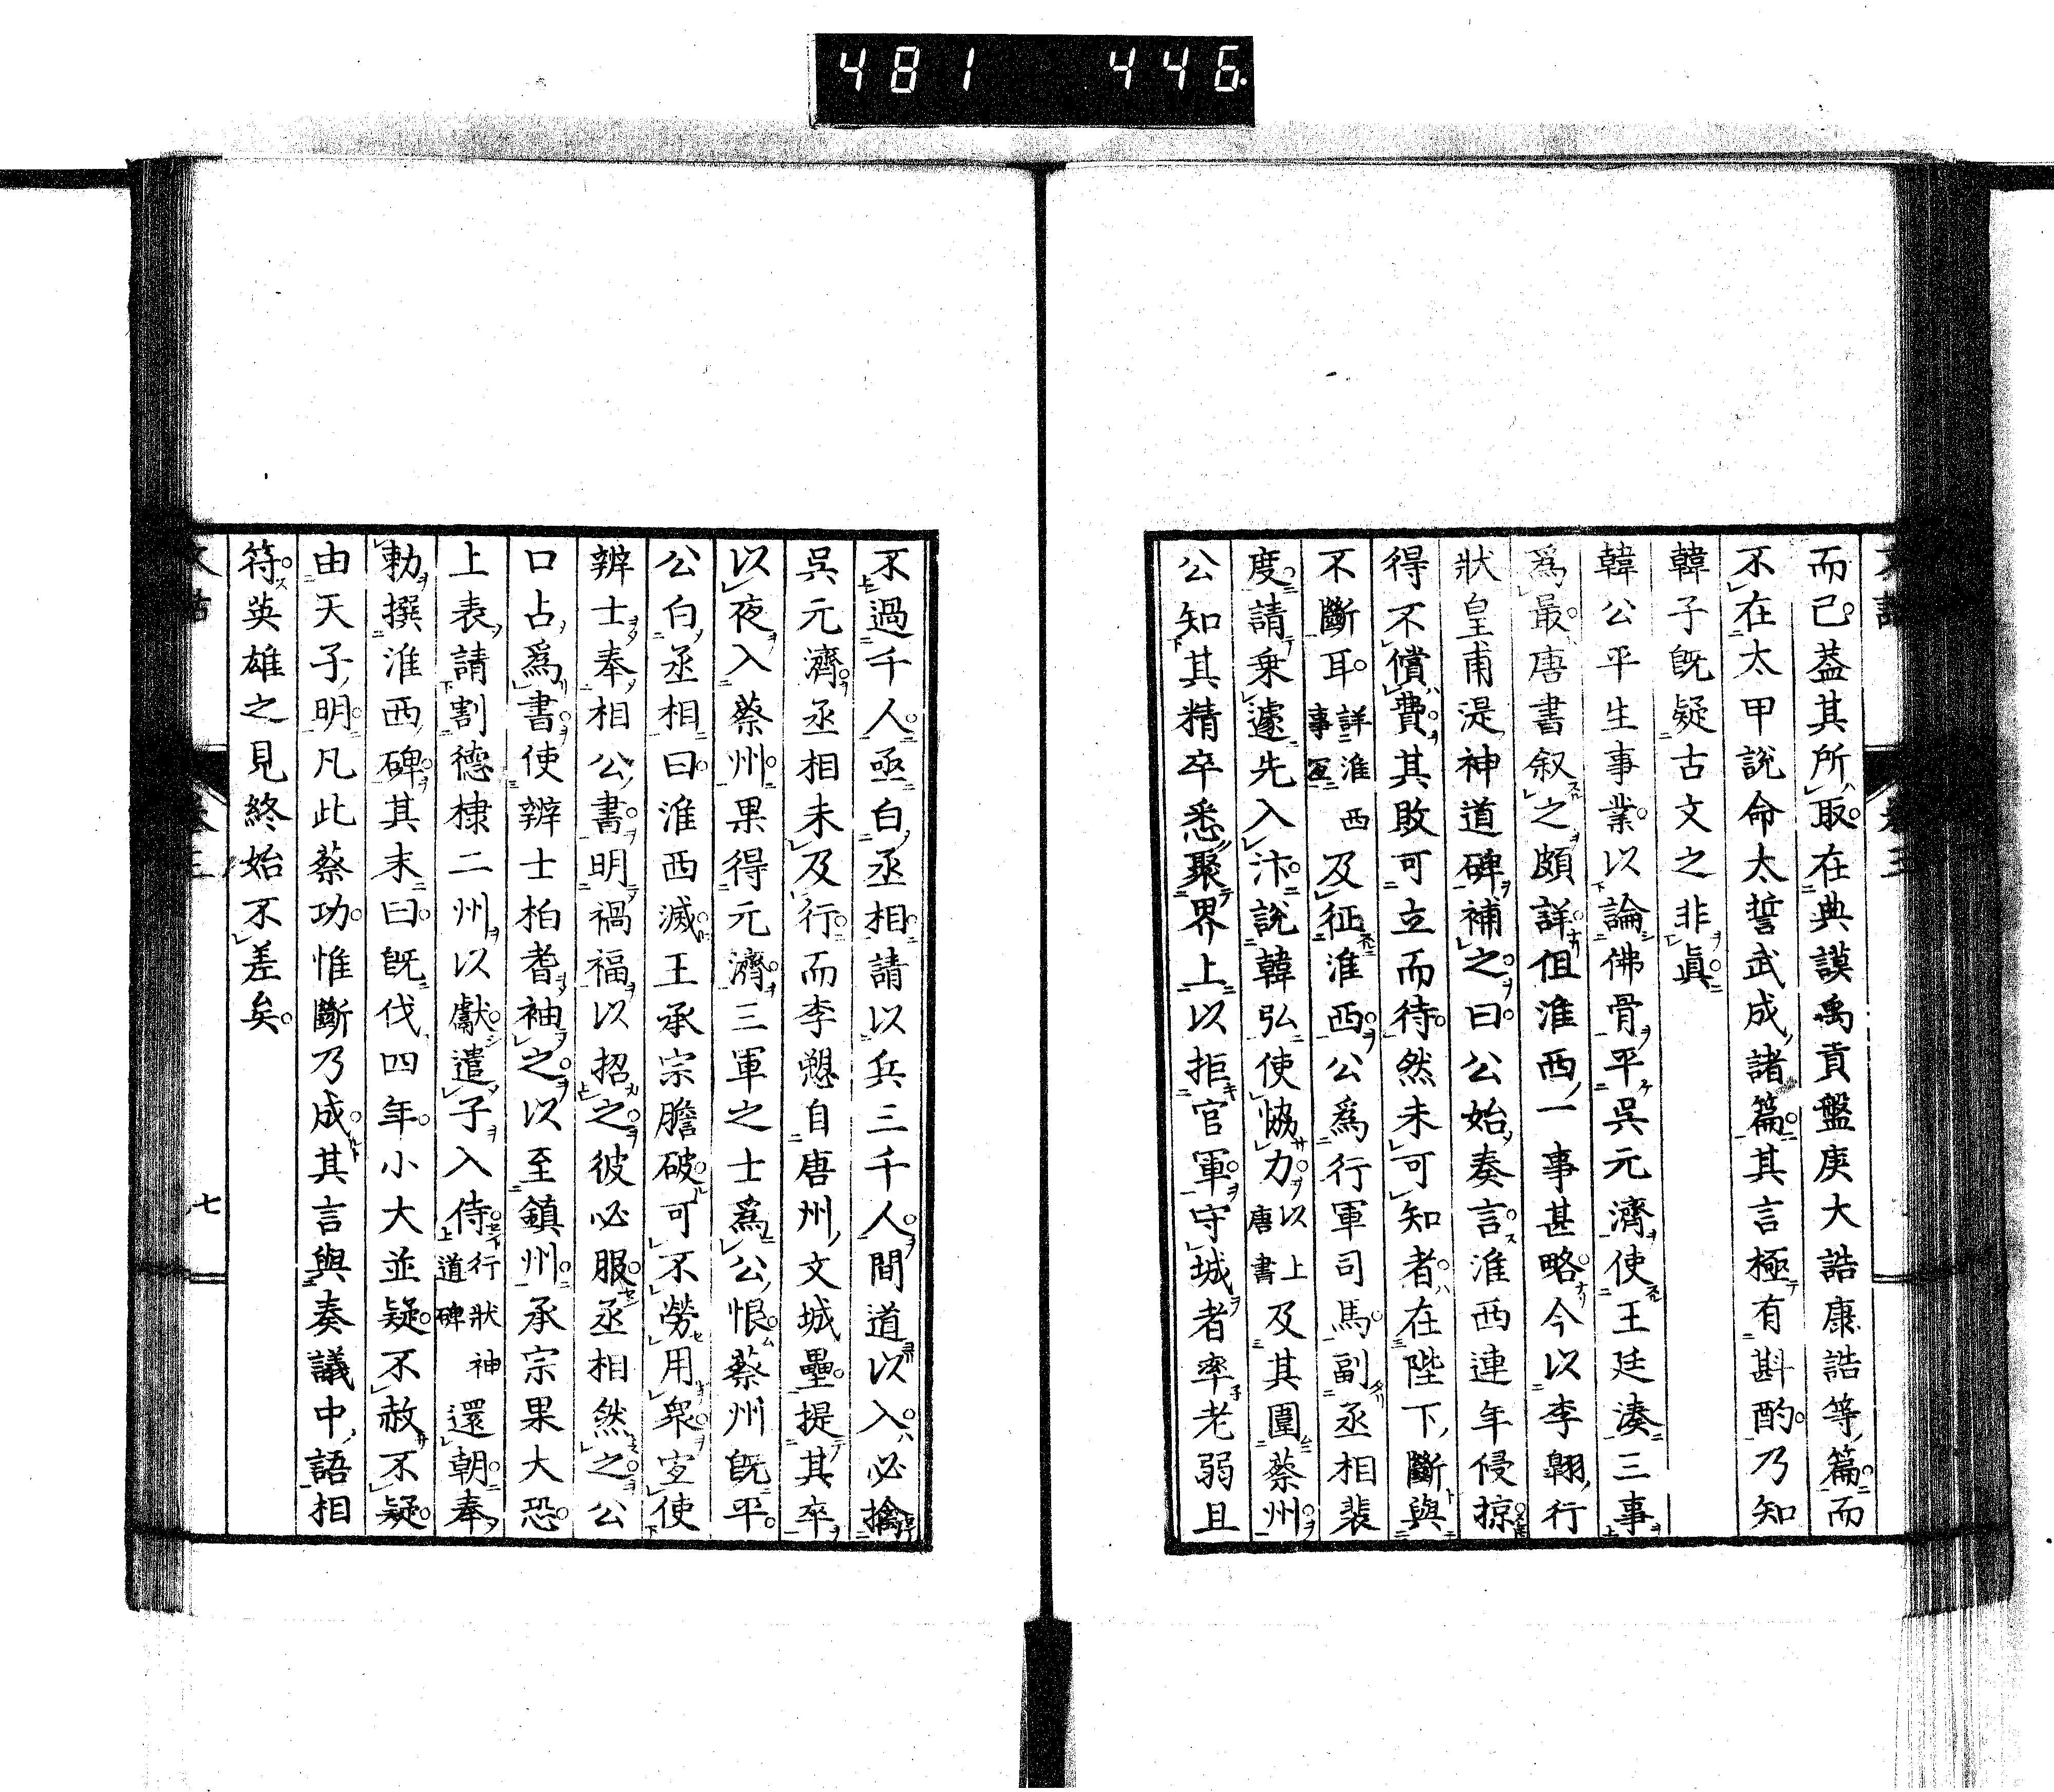 481 446
而已蓋其所取在典謨禹貢盤庚大誥康誥等篇而
不在太甲說命太誓武成諸篇其言極有斟酌乃知
韓子既疑古文之非眞
韓公平生事業以論佛骨平呉元濟使王廷湊三事
爲最唐書叙之頗詳但淮西一事甚略今以李翺行
狀皇甫湜神道碑補之曰公始奏言淮西連年侵掠
得不償費其敗可立而待然未可知者在陛下斷與
不斷耳詳淮西事宜及征淮西公爲行軍司馬副丞相裴
度請乗遽先入汴說韓弘使協力以上唐書及其圍蔡州
公知其精卒悉聚界上以拒官軍守城者率老弱且
不過千人亟白丞相請以兵三千人間道以入必擒
呉元濟丞相未及行而李愬自唐州文城壘提其卒
以夜入蔡州果得元濟三軍之士爲公恨蔡州既平
公白丞相曰淮西滅王承宗膽破可不勞用衆宜使
辨士奉相公書明禍福以招之彼必服丞相然之公
口占爲書使辨士柏耆袖之以至鎮州承宗果大恐
上表請割德棣二州以獻遣子入侍行狀神道碑還朝奉
勅撰淮西碑其末曰既伐四年小大並疑不赦不疑
由天子明凡此蔡功惟斷乃成其言與奏議中語相
符英雄之見終始不差矣
七